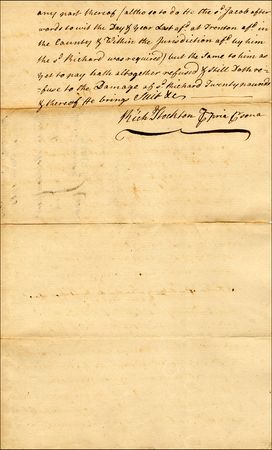 any part thereof (altho so to do He the sd. Jacob after
wards to wit the Day & Year Last afd. at Trenton afd. in
the County & Within the Jurisdiction afd. by him
the sd. Richard was required) but the Same to him as
yet to pay hath altogether refused & Still Doth re-
fuse to the Damage of sd. Richard Twenty pounds
& thereof He brings Suit &c
Richd Stockton